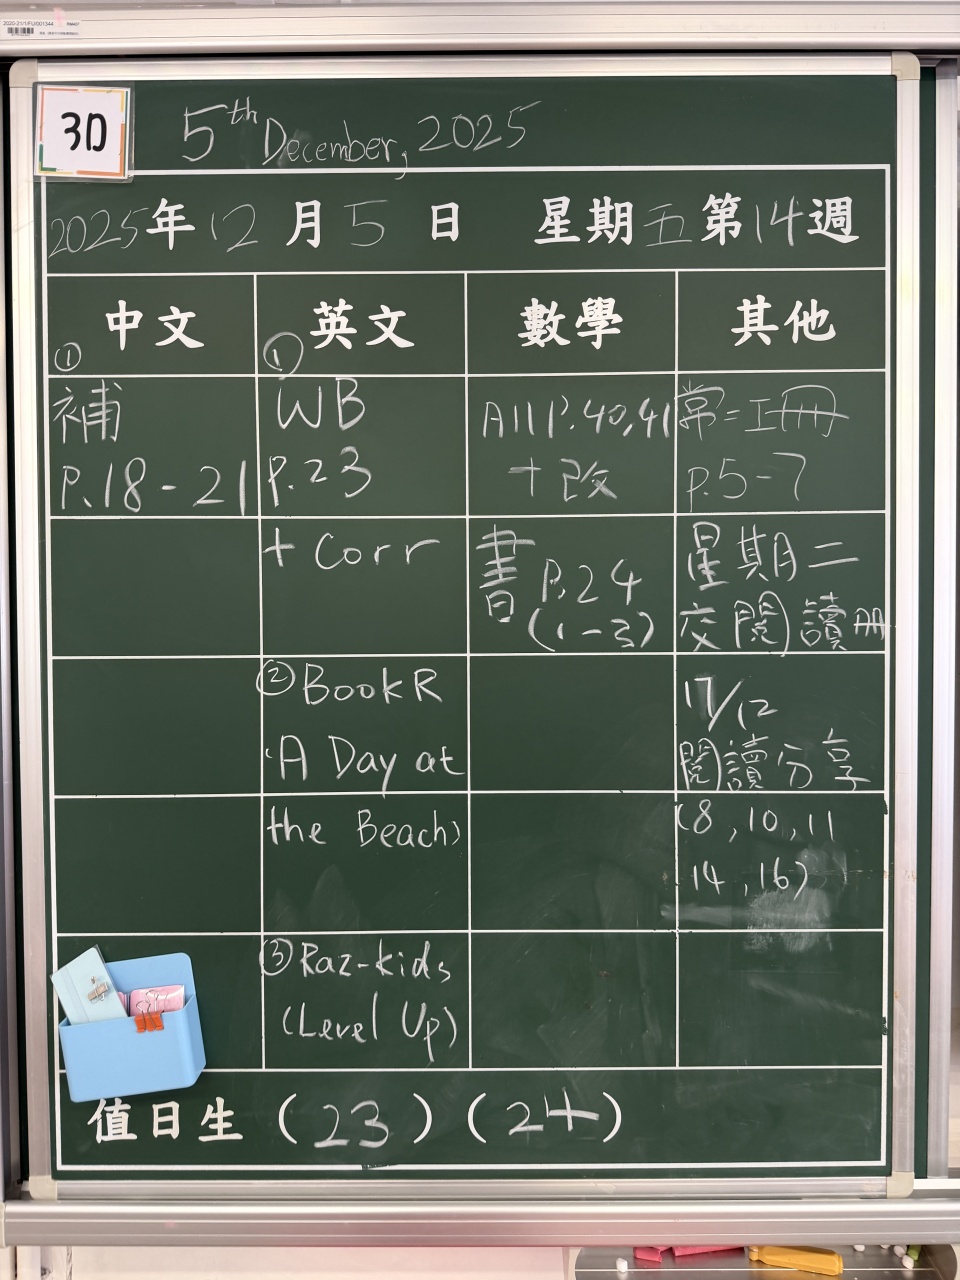 2020-21/1/FU/001344
3D
5th December, 2025
2025年12月5日 星期五第14週
中文 英文 數學 其他
①
補
P.18-21
①
WB
P.23
+ Corr
② BookR
'A Day at
the Beach'
③ Raz-kids
(Level Up)
A11 P.40,41
+改
書 P.24
(1-3)
常=工冊
p.5-7
星期二
交閱讀冊
17/12
閱讀分享
(8,10,11
14,16)
值日生(23)(24)